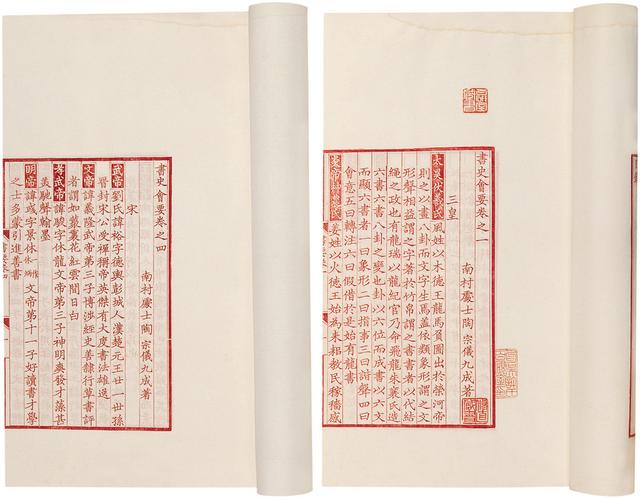 書史會要卷之一
南村處士陶宗儀九成著
三皇
太昊伏羲氏風姓以木德王龍馬負圖出於榮河帝
則之以畫八卦而文字生焉蓋依類象形謂之文
形聲相益謂之字著於竹帛謂之書書者以代結
繩之政也有龍瑞以龍紀官乃命飛龍朱襄氏造
六書六書八卦之變也卦以六位而成書以六文
而顯六書者一曰象形二曰指事三曰諧聲四曰
會意五曰轉注六曰假借於是始有龍書
炎帝神農氏姜姓以火德王始為耒耜教民稼穡感
書史會要卷之四
南村處士陶宗儀九成著
宋
武帝劉氏諱裕字德輿彭城人漢楚元王廿一世孫
晉封宋公受禪稱帝英傑有大度書法雄逸
文帝諱義隆武帝第三子博涉經史善隸行草書評
者謂如叢裏花紅雲間日白
孝武帝諱駿字休龍文帝第三子神明爽發才藻甚
美馳聲翰墨
明帝諱彧字景休文帝第十一子好讀書才學
之士多蒙引進善書